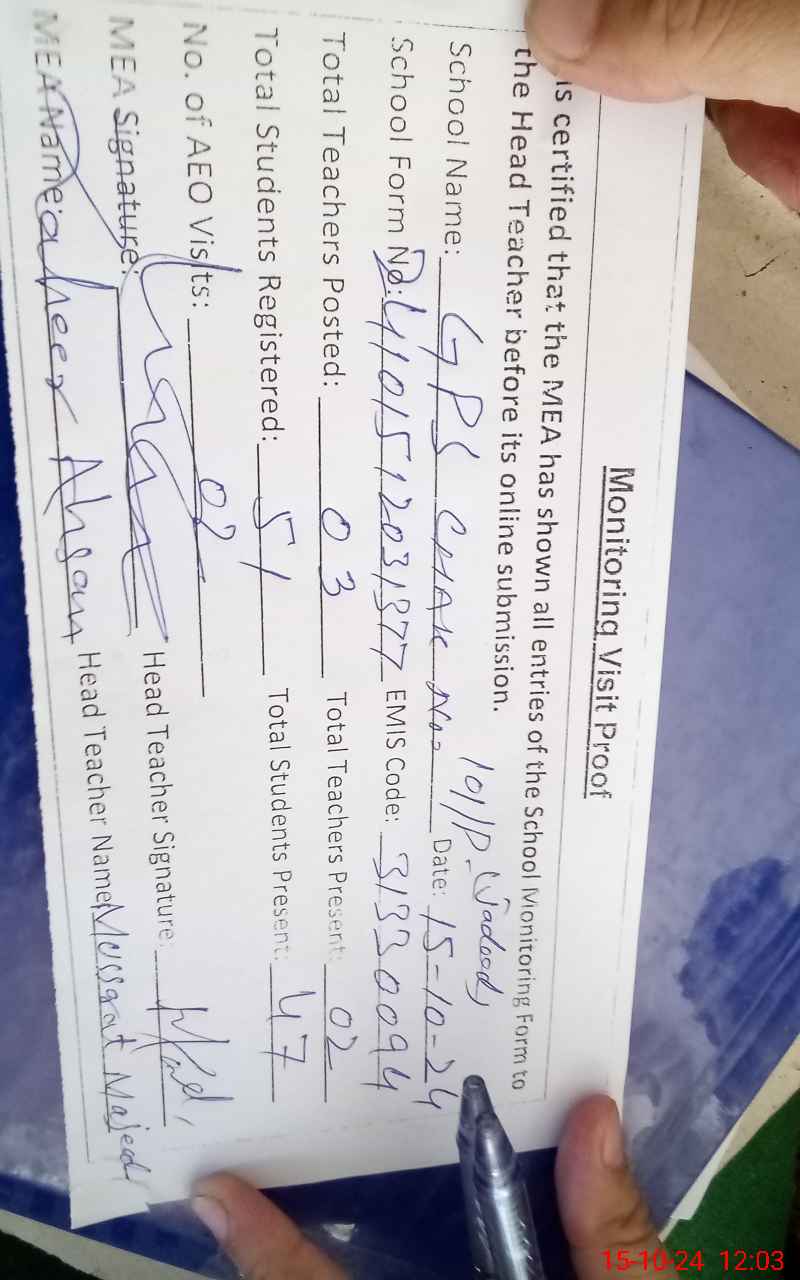 Monitoring Visit Proof
is certified that the MEA has shown all entries of the School Monitoring Form to
the Head Teacher before its online submission.
School Name: GPS CHAK No- 101/P- Date: 15-10-24
School Form No: EMIS Code: 31330094
Total Teachers Posted: 03 Total Teachers Present: 02
Total Students Registered: 51 Total Students Present: 47
No. of AEO Visits: 02
MEA Signature: Head Teacher Signature:
MEA Name: Ahsan Head Teacher Name: Mussarat Majeed
15-10-24 12:03